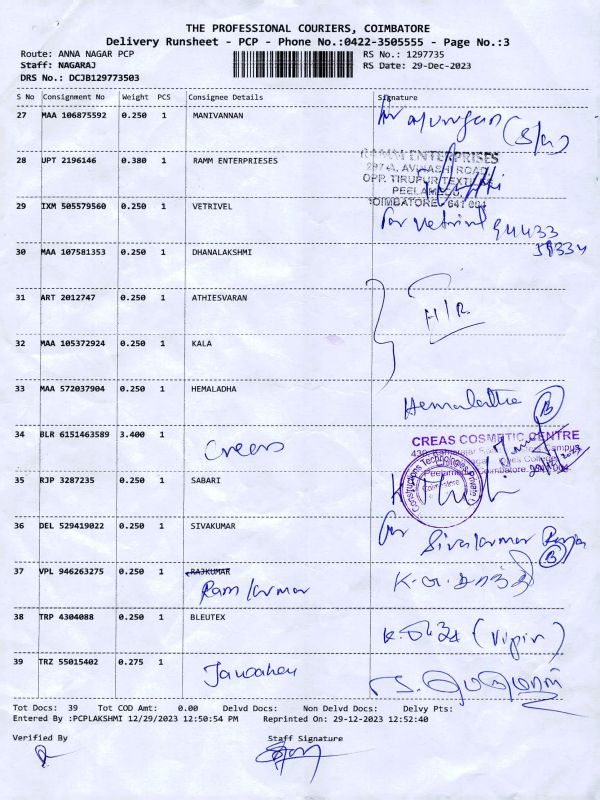 THE PROFESSIONAL COURIERS, COIMBATORE
Delivery Runsheet - PCP - Phone No.:0422-3505555 - Page No.:3
Route: ANNA NAGAR PCP RS No.: 1297735
Staff: NAGARAJ RS Date: 29-Dec-2023
DRS No.: DCJB129773503
S No Consignment No Weight PCS Consignee Details Signature
27 MAA 106875592 0.250 1 MANIVANNAN
28 UPT 2196146 0.380 1 RAMM ENTERPRIESES RAMM ENTERPRISES
AVINASHI ROAD
OPP. TIRUPUR TEXTILES
PEELAMEDU,
COIMBATORE - 641 004
29 IXM 505579560 0.250 1 VETRIVEL For Vetrivel 94433
30 MAA 107581353 0.250 1 DHANALAKSHMI
31 ART 2012747 0.250 1 ATHIESVARAN H/R
32 MAA 105372924 0.250 1 KALA
33 MAA 572037904 0.250 1 HEMALADHA Hemalatha B
34 BLR 6151463589 3.400 1 Creas CREAS COSMETIC CENTRE
Peelamedu, Coimbatore
35 RJP 3287235 0.250 1 SABARI
36 DEL 529419022 0.250 1 SIVAKUMAR For Sivakumar B
37 VPL 946263275 0.250 1 RAJKUMAR
Ram kumar
38 TRP 4304088 0.250 1 BLEUTEX (Vipin)
39 TRZ 55015402 0.275 1
Tot Docs: 39 Tot COD Amt: 0.00 Delvd Docs: Non Delvd Docs: Delvy Pts:
Entered By :PCPLAKSHMI 12/29/2023 12:50:54 PM Reprinted On: 29-12-2023 12:52:40
Verified By Staff Signature